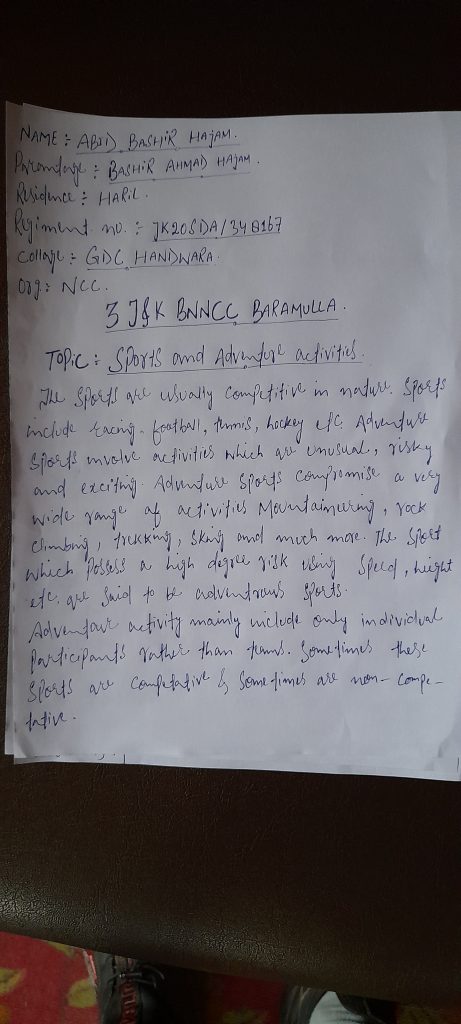 NAME : ABID BASHIR HAJAM.
Parentage : BASHIR AHMAD HAJAM.
Residence : HARIL.
Regiment no. : JK20SDA/348167
Collage : GDC HANDWARA.
Org : NCC.
3 J&K BNNCC BARAMULLA.
TOPIC : Sports and Adventure activities.
The Sports are usually Competitive in nature. Sports
include racing, football, tennis, hockey etc. Adventure
Sports involve activities which are unusual, risky
and exciting. Adventure Sports Compromise a very
wide range of activities Mountaineering, rock
Climbing, trekking, Sking and much more. The Sport
which Possess a high degree risk using Speed, height
etc. are Said to be adventrous Sports.
Adventure activity mainly include only individual
Participants rather than teams. Sometimes these
Sports are competative & Sometimes are non-compe-
tative.